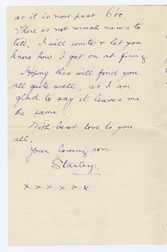 as it is now past 6 o'c.
There is not much news to
tell, I will write & let you
know how I get on at firing.
Hoping this will find you
all quite well, as I am
glad to say it leaves me
the same.
With best love to you
all.
Your loving son
Stanley.
x x x x x x x